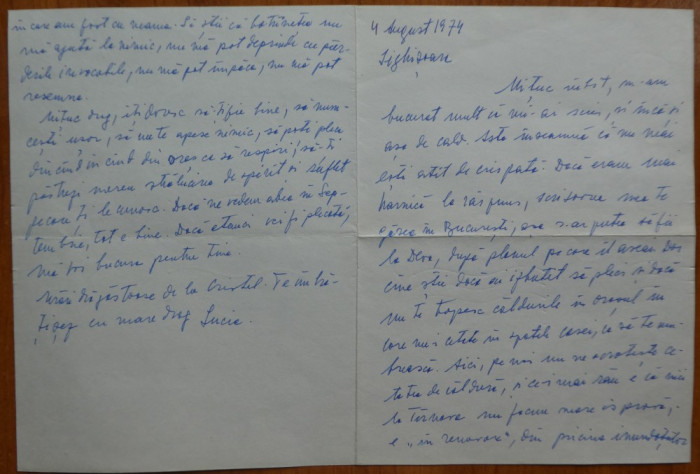 4 August 1974
Sighișoara
Mituc iubit, m-am
bucurat mult că mi-ai scris, și încă și
așa de cald. Asta înseamnă că nu mai
ești atît de crispată. Dacă eram mai
harnică la răspuns, scrisoarea mea te
găsea în București, așa s-ar putea să fii
la Deva, după planul pe care îl aveai. Dar
cine știe dacă ai izbutit să pleci și dacă
nu te topesc căldurile în orașul în
care nu-i cetate în spatele casei, ca să te um-
brească. Aici, pe noi nu ne ocrotește ce-
tatea de căldură, și ce-i mai rău e că nici
la Târnava nu facem mare ispravă,
e „în renovare", din pricina inundațiilor
în care am fost ca neama. Să știi că bătrînețea nu
mă ajută la nimic, nu mă pot deprinde cu pier-
derile irevocabile, nu mă pot împăca, nu mă pot
resemna.
Mituc drag, îți doresc să-ți fie bine, să mun-
cești ușor, să nu te apese nimic, să poți pleca
din cînd în cînd din oraș ca să respiri, să-ți
păstrezi mereu strălucirea de spirit și suflet
pe care ți le admir. Dacă ne vedem abia în Sep-
tembrie, tot e bine. Dacă atunci vei fi plecată,
mă voi bucura pentru tine.
Urări drăgăstoase de la Cristel. Te îmbră-
țișez cu mare drag Lucia.